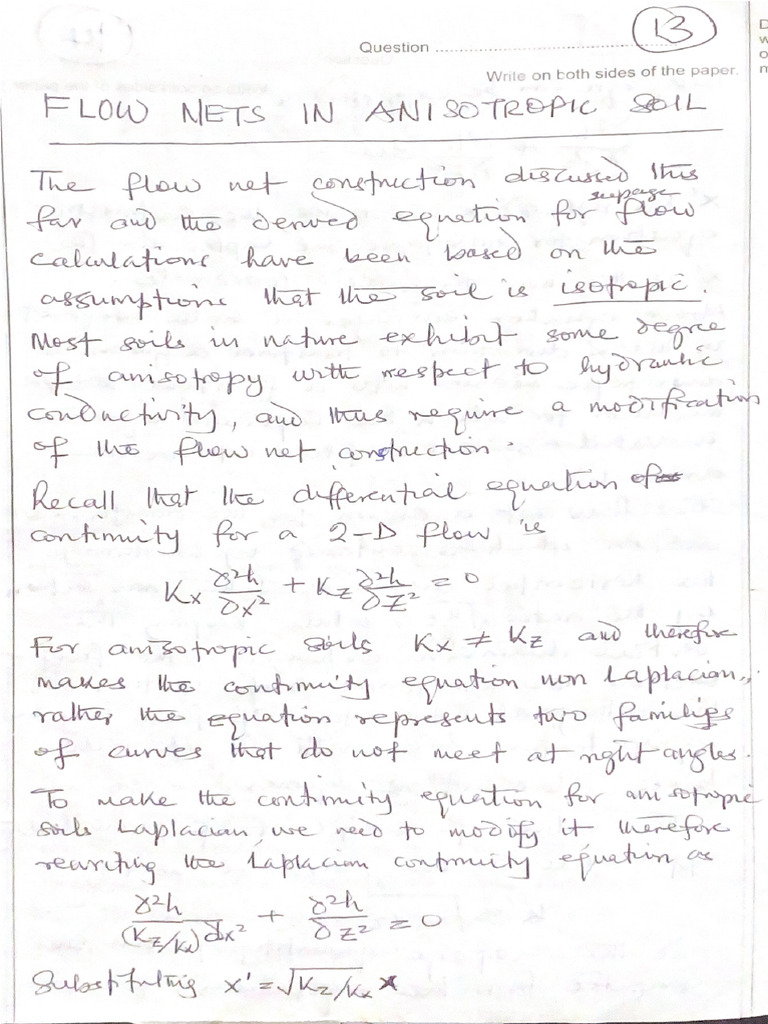 Question ........................ 13
Write on both sides of the paper.
FLOW NETS IN ANISOTROPIC SOIL
The flow net construction discussed thus
far and the derived equation for seepage flow
calculations have been based on the
assumptions that the soil is isotropic.
Most soils in nature exhibit some degree
of anisotropy with respect to hydraulic
conductivity, and thus require a modification
of the flow net construction.
Recall that the differential equation of
continuity for a 2-D flow is
Kx ∂²h/∂x² + Kz ∂²h/∂z² = 0
For anisotropic soils Kx ≠ Kz and therefore
makes the continuity equation non Laplacian,
rather the equation represents two families
of curves that do not meet at right angles.
To make the continuity equation for anisotropic
soils Laplacian, we need to modify it therefore
rewriting the Laplacian continuity equation as
∂²h/(Kz/Kx)∂x² + ∂²h/∂z² = 0
Substituting x' = √Kz/Kx x